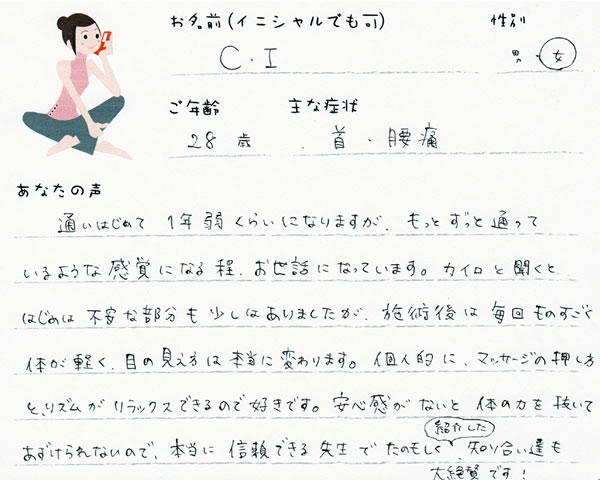 お名前(イニシャルでも可) 性別
C・I 男・女
ご年齢 主な症状
28 歳 首・腰痛
あなたの声
通いはじめて 1年弱くらいになりますが、もっとずっと通って
いるような感覚になる程、お世話になっています。カイロと聞くと
はじめは 不安な部分も少しはありましたが、施術後は毎回ものすごく
体が軽く、目の見え方は本当に変わります。個人的に、マッサージの押し方
と、リズムが リラックスできるので好きです。安心感がないと 体の力を抜いて
あずけられないので、本当に 信頼できる先生で たのもしく 紹介した 知り合い達も
大絶賛です!